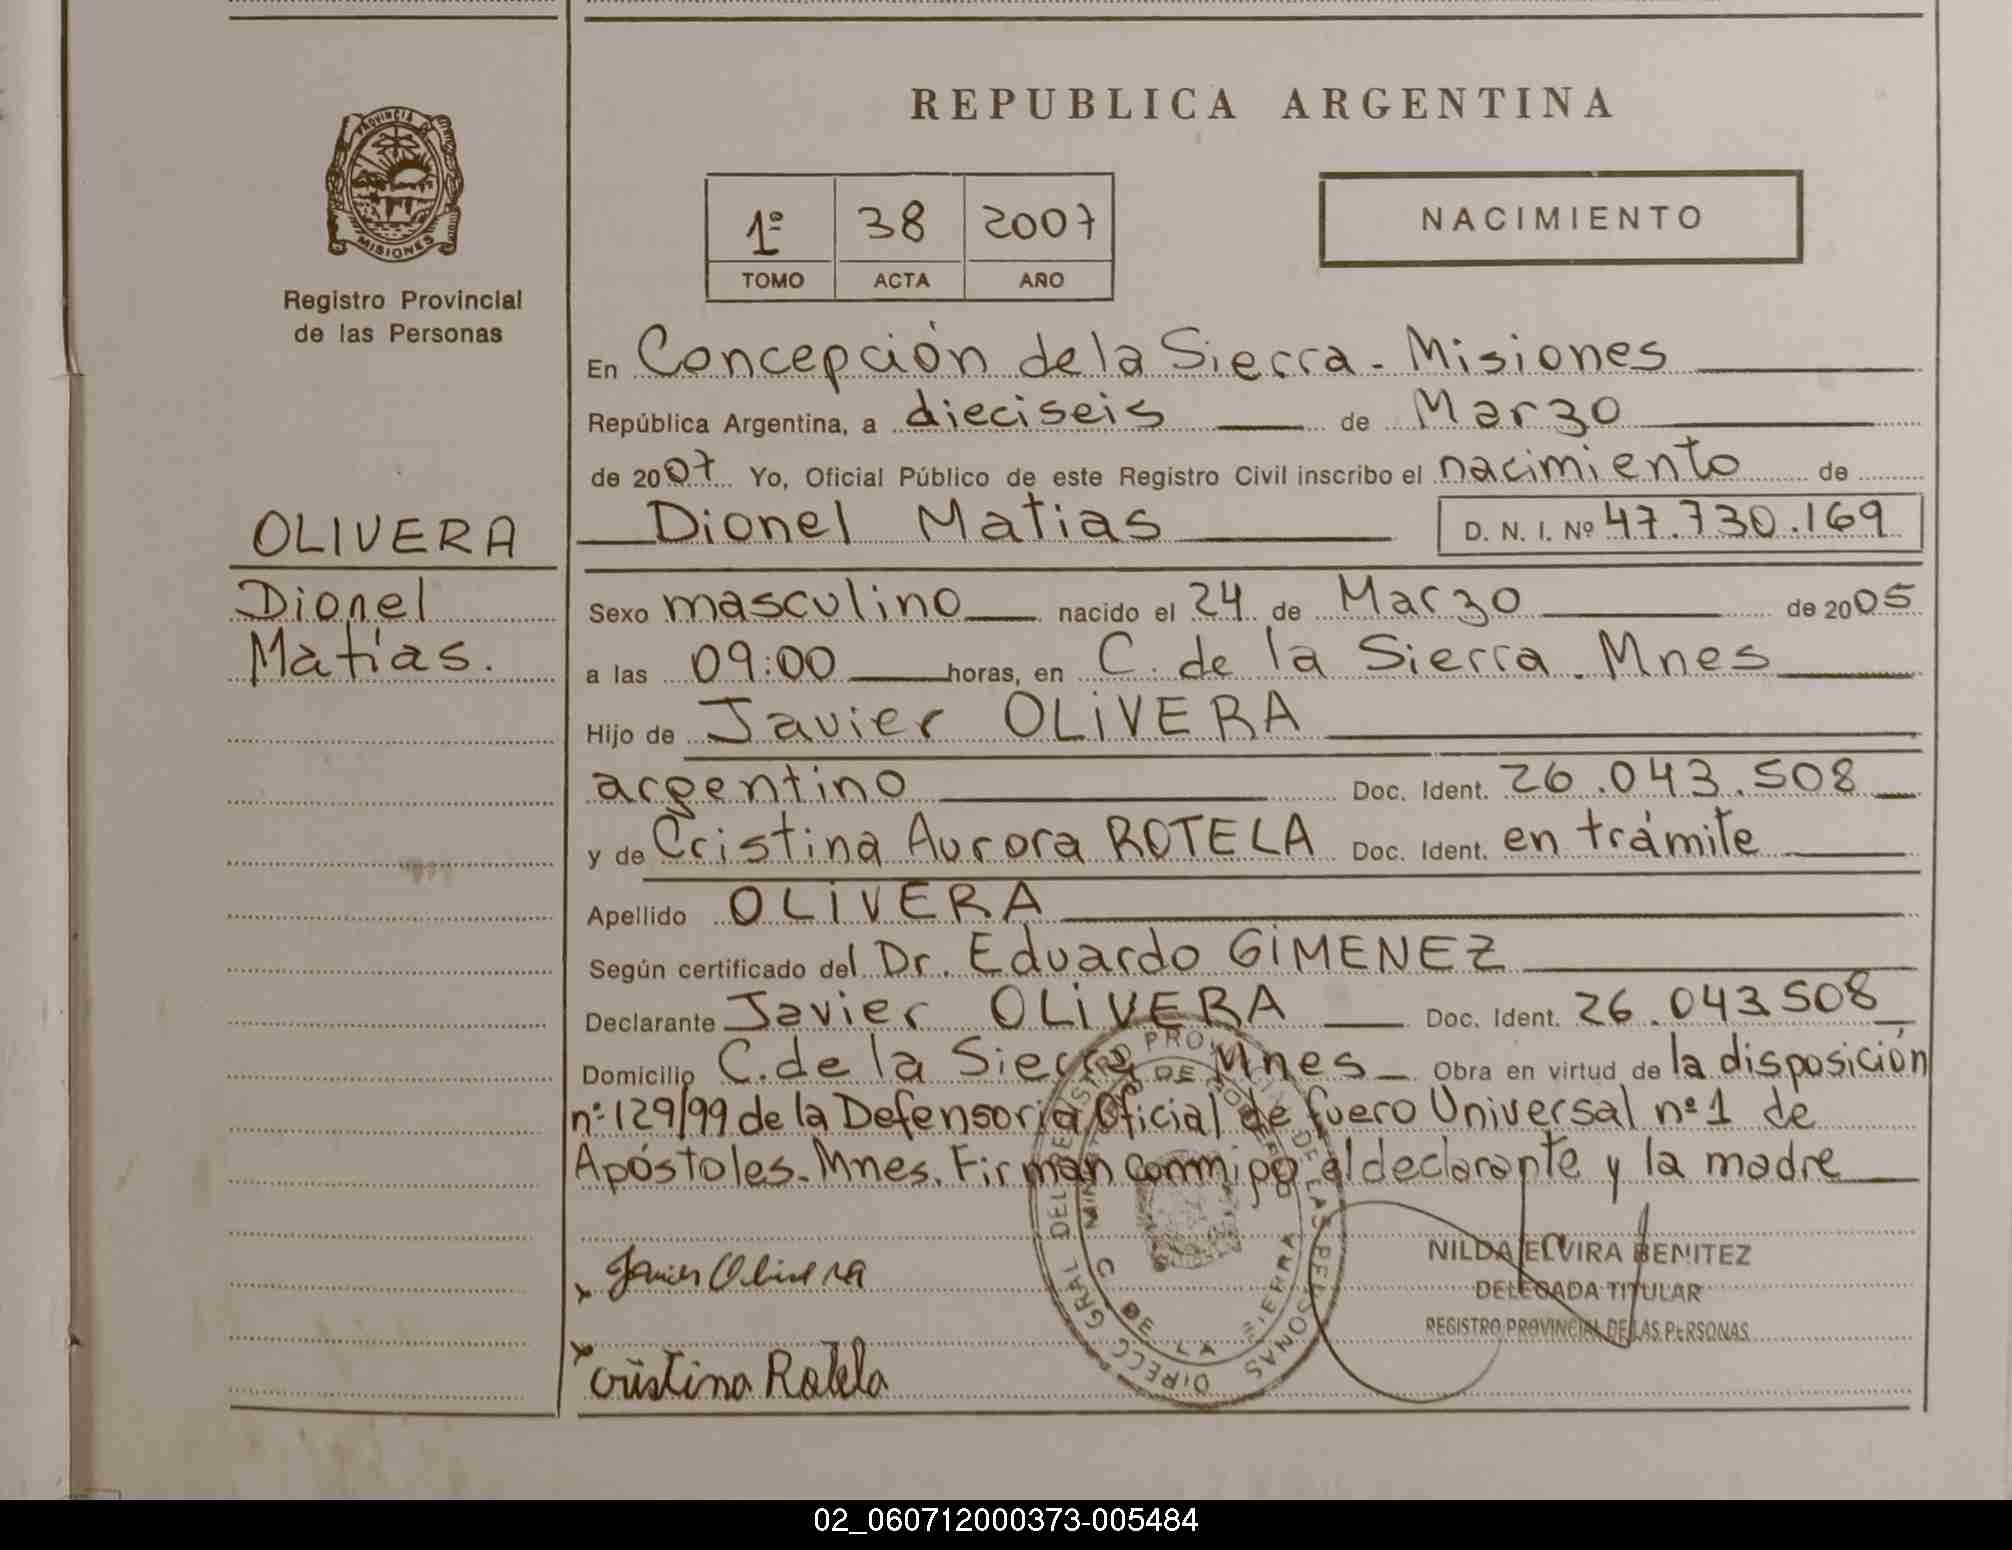 REPUBLICA ARGENTINA
PROVINCIA DE
MISIONES
Registro Provincial
de las Personas
1º 38 2007
TOMO ACTA AÑO
NACIMIENTO
OLIVERA
Dionel
Matías.
En Concepción de la Sierra - Misiones
República Argentina, a dieciseis de Marzo
de 2007 Yo, Oficial Público de este Registro Civil inscribo el nacimiento de
Dionel Matias D. N. I. Nº 47.730.169
Sexo masculino nacido el 24 de Marzo de 2005
a las 09:00 horas, en C. de la Sierra. Mnes
Hijo de Javier OLIVERA
argentino Doc. Ident. 26.043.508
y de Cristina Aurora ROTELA Doc. Ident. en trámite
Apellido OLIVERA
Según certificado del Dr. Eduardo GIMENEZ
Declarante Javier OLIVERA Doc. Ident. 26.043.508
Domicilio C. de la Sierra Mnes Obra en virtud de la disposición
nº 129/99 de la Defensoría Oficial de fuero Universal nº 1 de
Apóstoles. Mnes. Firman conmigo el declarante y la madre
x Javier Olivera
x Cristina Rotela
DIRECC GRAL DEL REGISTRO PROV. DE LAS PERSONAS
C DE LA SIERRA
NILDA ELVIRA BENITEZ
DELEGADA TITULAR
REGISTRO PROVINCIAL DE LAS PERSONAS
02_060712000373-005484